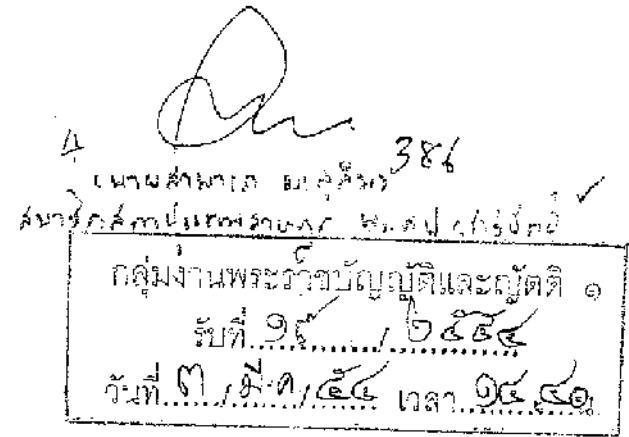 386
(นายสามารถ มะลูลีม)
สมาชิกสภาผู้แทนราษฎร พรรคประชาธิปัตย์
กลุ่มงานพระราชบัญญัติและญัตติ ๑
รับที่ / ๒๕๕๔
วันที่ ๓ / มี.ค / ๕๔ เวลา